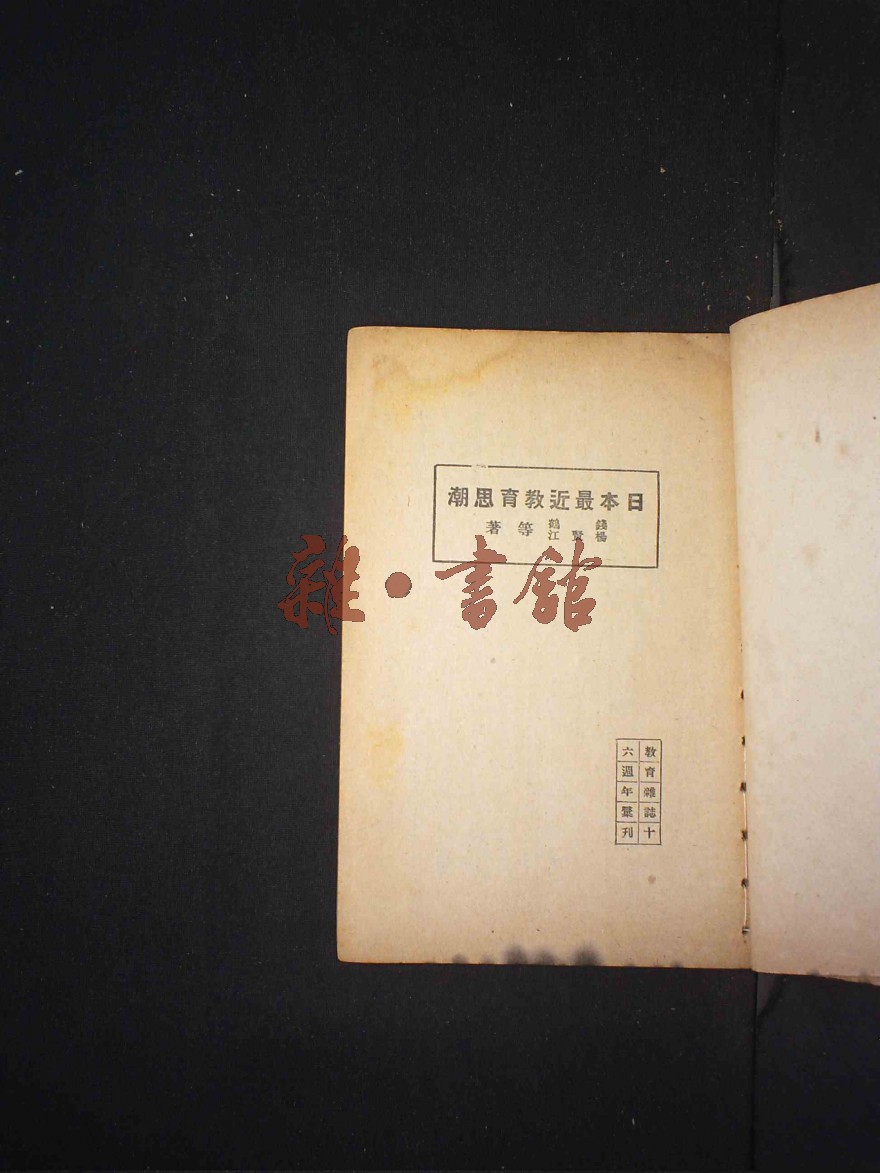 日本最近教育思潮
錢鶴
楊賢江
等著
雜·書館
教育雜誌十
六週年彙刊